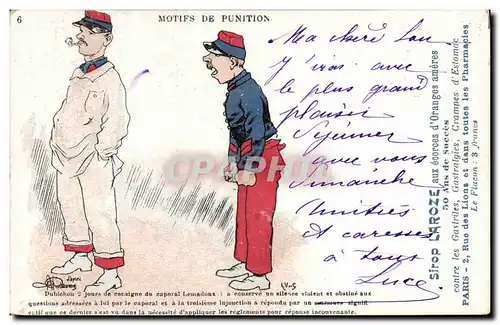 6
MOTIFS DE PUNITION
Ma chère Lou
J'irai avec
le plus grand
plaisir
déjeuner
avec vous
dimanche
Amitiés
et caresses
à tous
Luce
Sirop LAROZE aux écorces d'Oranges amères
50 Ans de Succès
contre les Gastrites, Gastralgies, Crampes d'Estomac
PARIS - 2, Rue des Lions et dans toutes les Pharmacies
Le Flacon : 3 francs
Henri
Dubichon 2 jours de consigne du caporal Lemadoux : a conservé un silence violent et obstiné aux
questions adressées à lui par le caporal et à la troisième injonction a répondu par un
catif que ce dernier s'est vu dans la nécessité d'appliquer les règlements pour réponse inconvenante.
CPArama